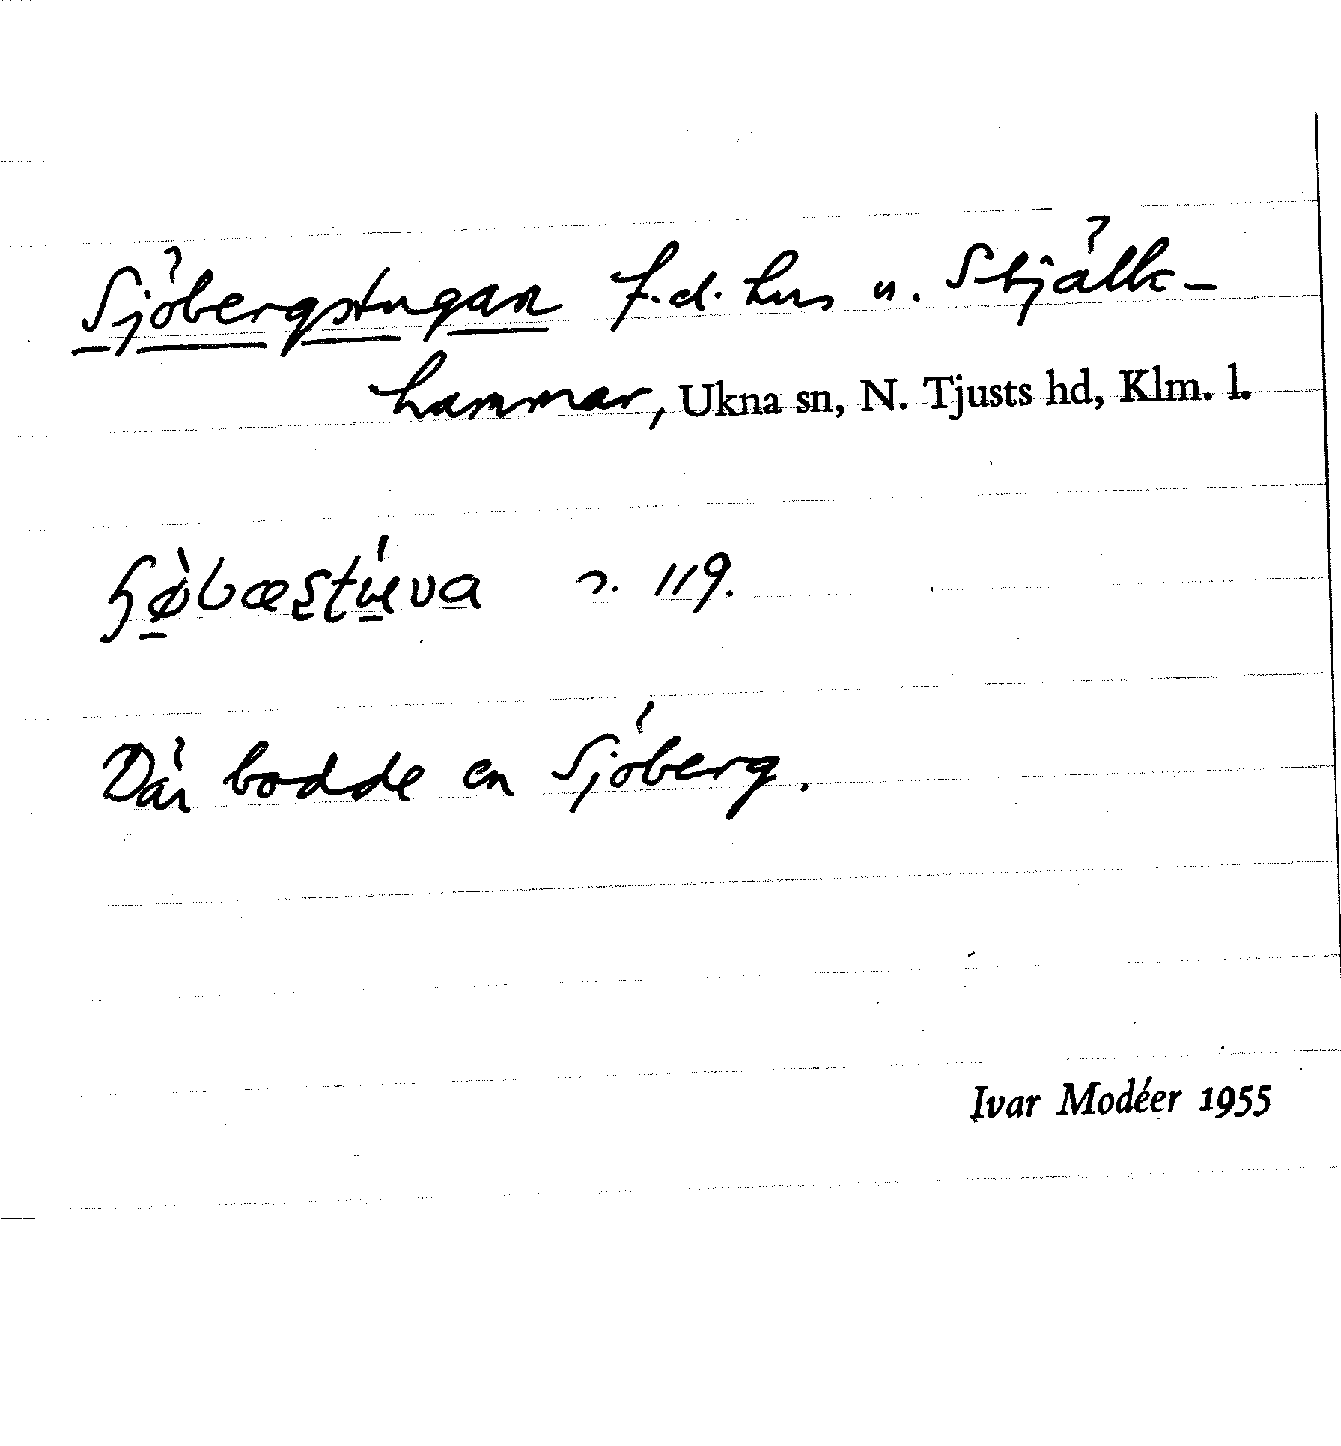 Sjöbergstugan f.d. hus u. Stjälk-
hammar, Ukna sn, N. Tjusts hd, Klm. l.
119.
Där bodde en Sjöberg.
Ivar Modéer 1955